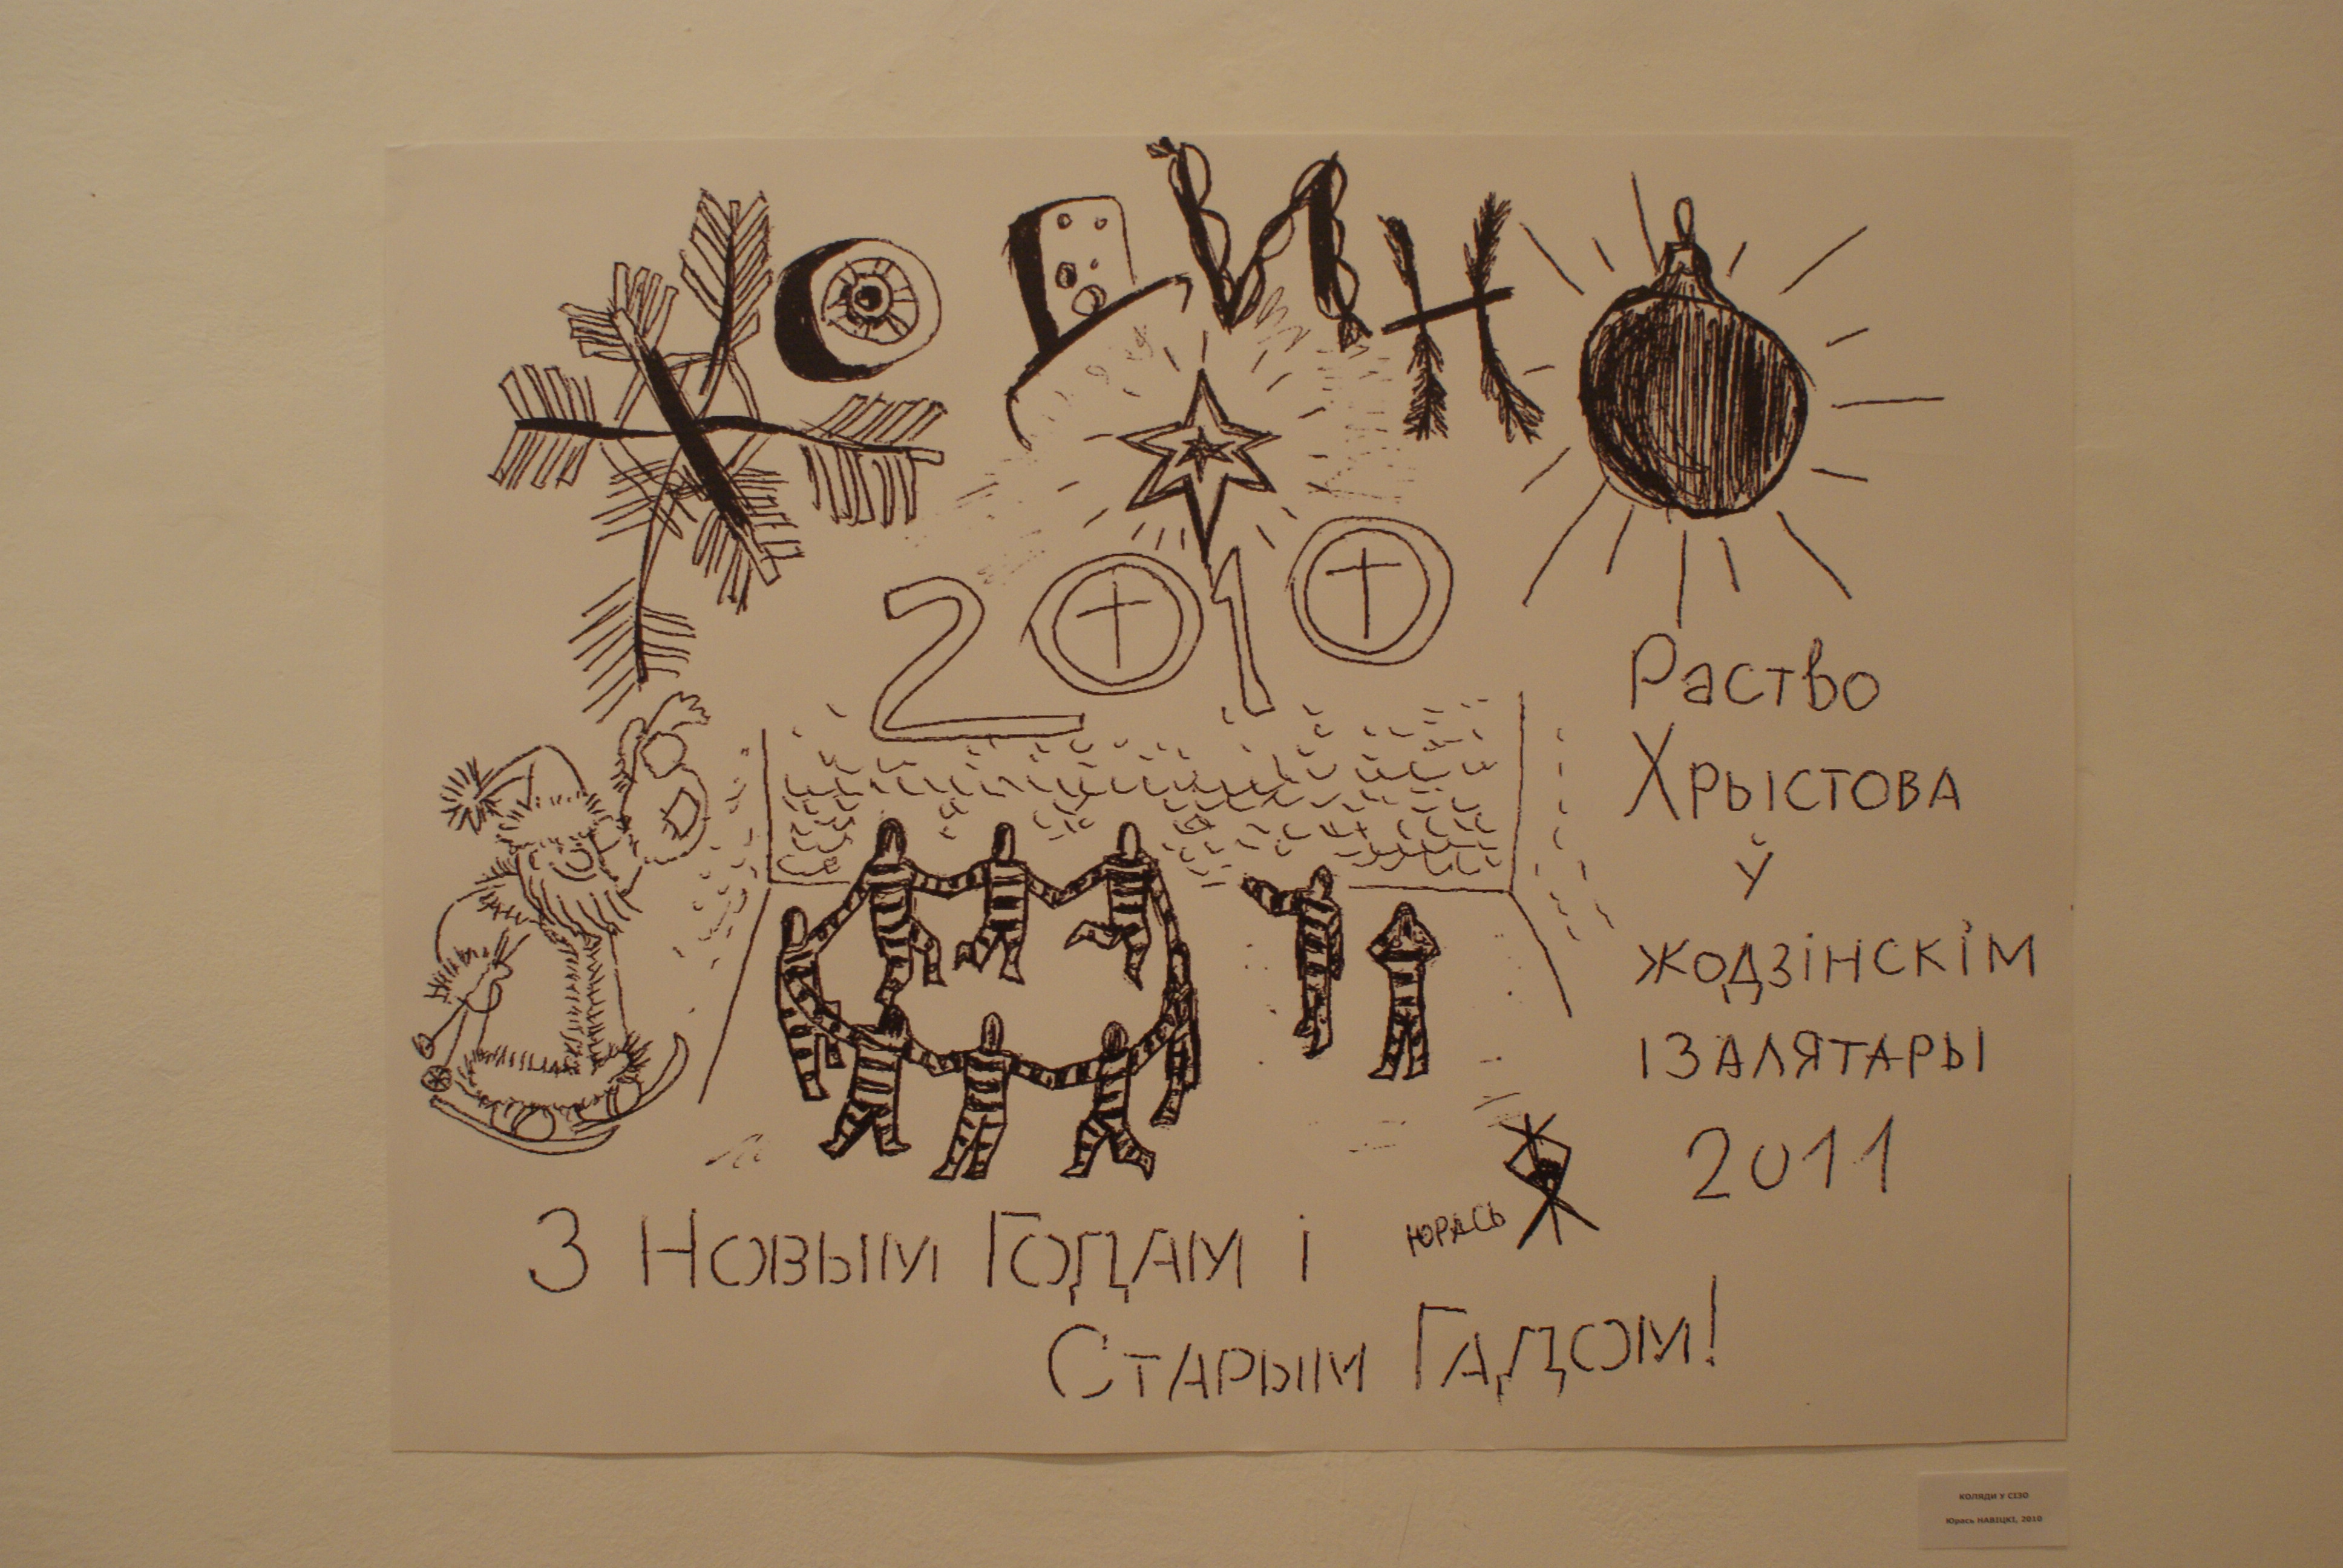 ЖОДИНО
2010
Раство
Хрыстова
ў
жодзінскім
ізалятары
2011
Юрась
З Новым Годам і
Старым Гадом!
КОЛЯДИ У СІЗО
Юрась НАВІЦКІ, 2010